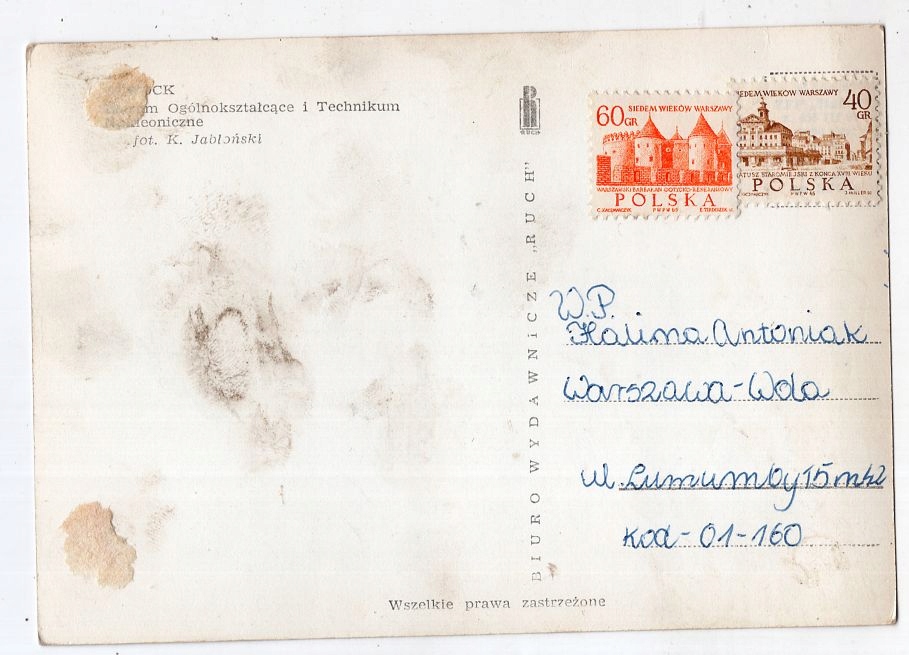 Ogólnokształcące i Technikum
fot. K. Jabłoński
RUCH
BIURO WYDAWNICZE „RUCH"
60 GR
SIEDEM WIEKÓW WARSZAWY
WARSZAWSKI BARBAKAN GOTYCKO-RENESANSOWY
POLSKA
PWPW 65
40 GR
WIEKÓW WARSZAWY
STAROMIEJSKI Z KOŃCA XVIII WIEKU
POLSKA
PWPW 65
W.P.
Halina Antoniak
Warszawa-Wola
ul. Lumumby 15 m 42
Kod-01-160
Wszelkie prawa zastrzeżone